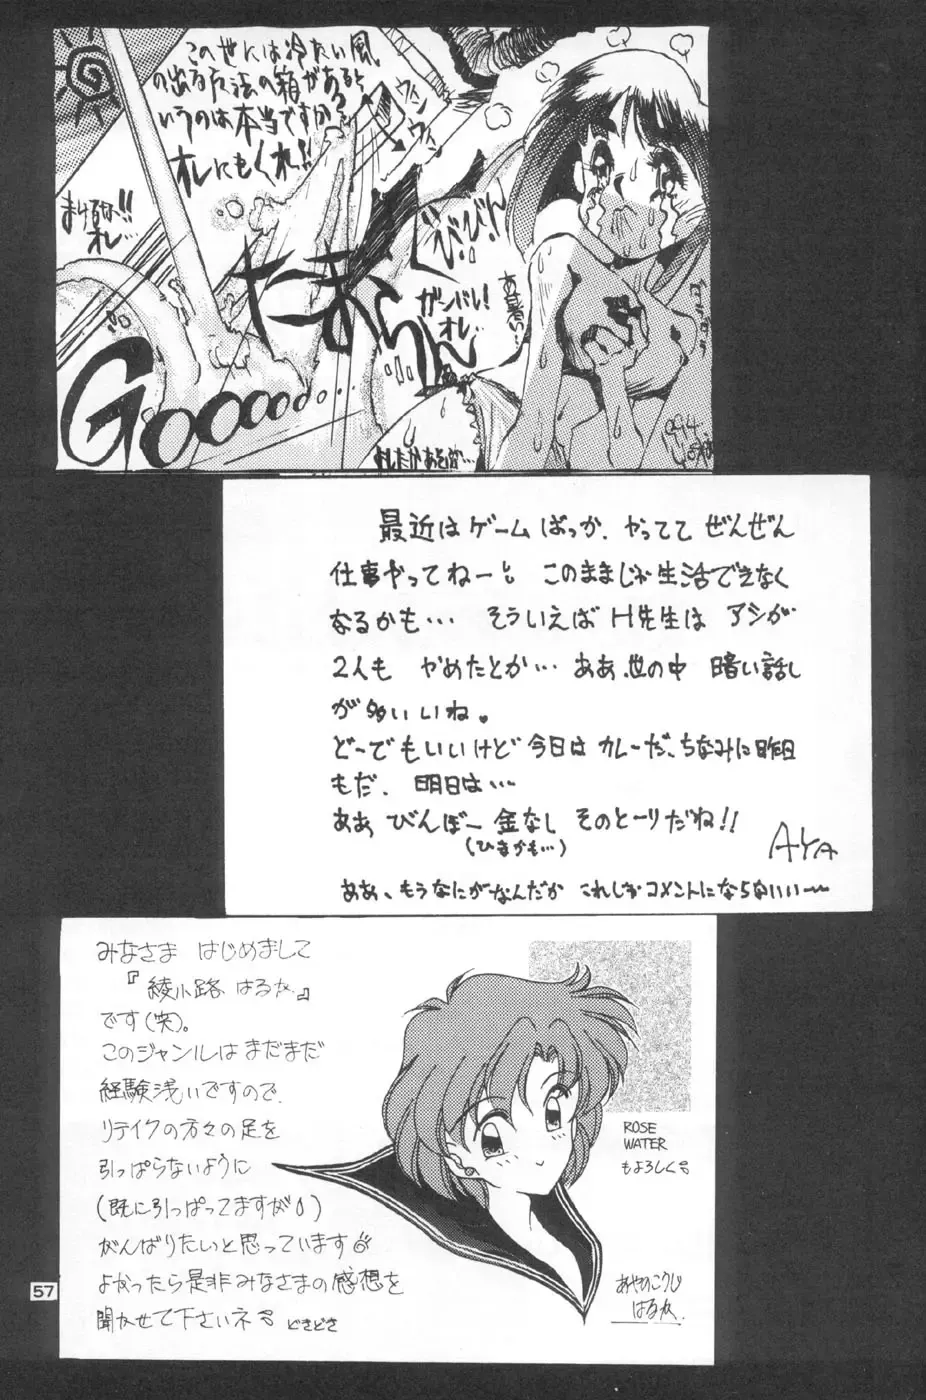 この世には冷たい風
の出る魔法の箱があると
いうのは本当ですか?
オレにもくれ!!
まけるな!!
オレ…
ウィン
ウィン
たまらん
び…びん
ガンバレ!
オレ…
あ
暑い…
Goooooo...
'94
最近はゲームばっか、やってて ぜんぜん
仕事やってねーと このままじゃ生活できなく
なるかも… そういえば H先生は アシが
2人も やめたとか… ああ、世の中 暗い話し
が多いいね。
どーでもいいけど今日は カレーだ、ちなみに昨日
もだ、明日は…
ああ びんぼー金なし そのとーりだね!!
(ひまかも…)
AYA
ああ、もうなにがなんだか これじゃコメントにならないいー
みなさま はじめまして
『綾小路 はるか』
です(笑)。
このジャンルはまだまだ
経験浅いですので、
リテイクの方々の足を
引っぱらないように
(既に引っぱってますが)
がんばりたいと思っています
よかったら是非みなさまの感想を
聞かせて下さいネ どきどき
ROSE
WATER
もよろしく
あやのこうじ
はるか
57